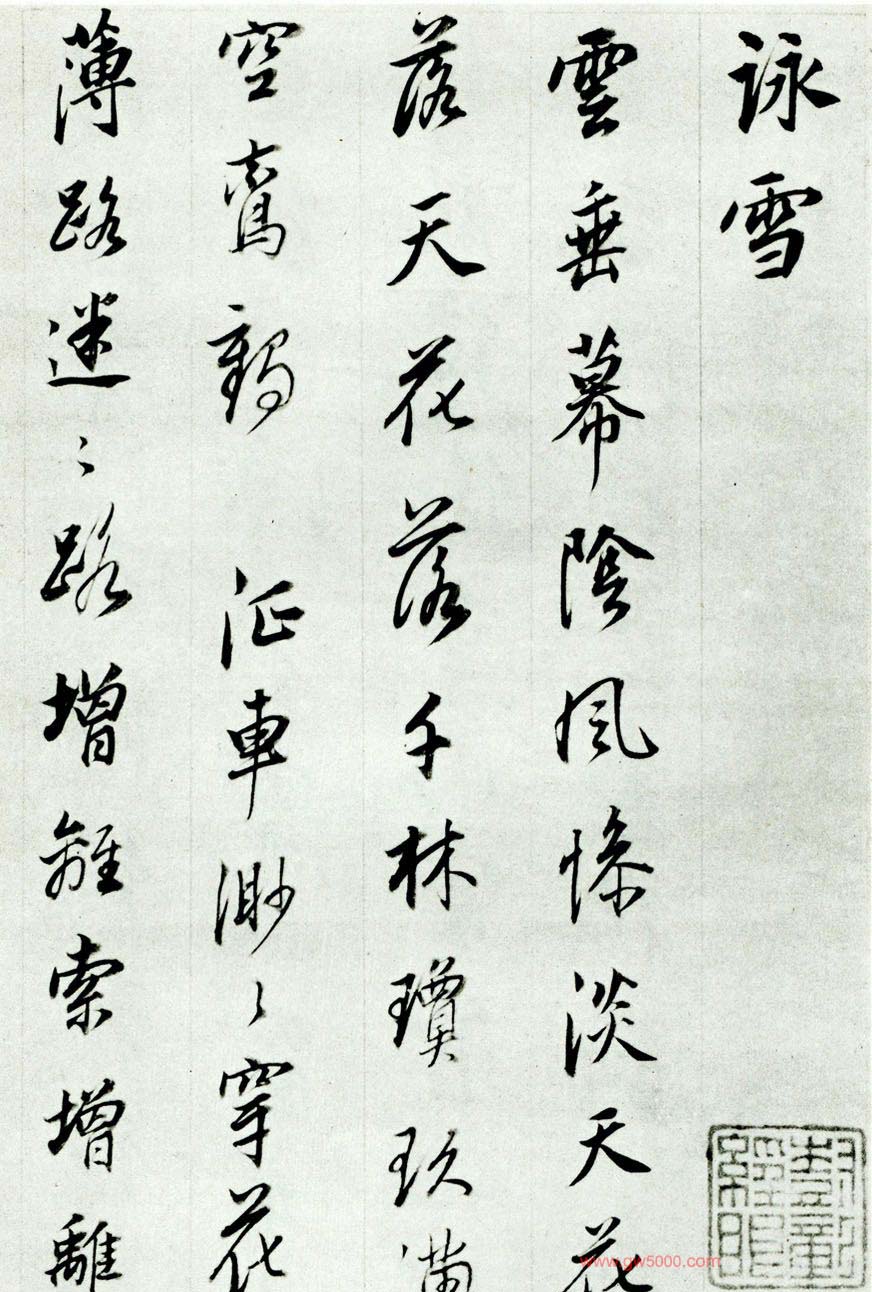 詠雪
雲垂幕陰風慘淡天花
落天花落千林瓊玖滿
空鸞鶴 征車渺〻穿花
薄路迷〻路增離索增離
www.gw5000.com